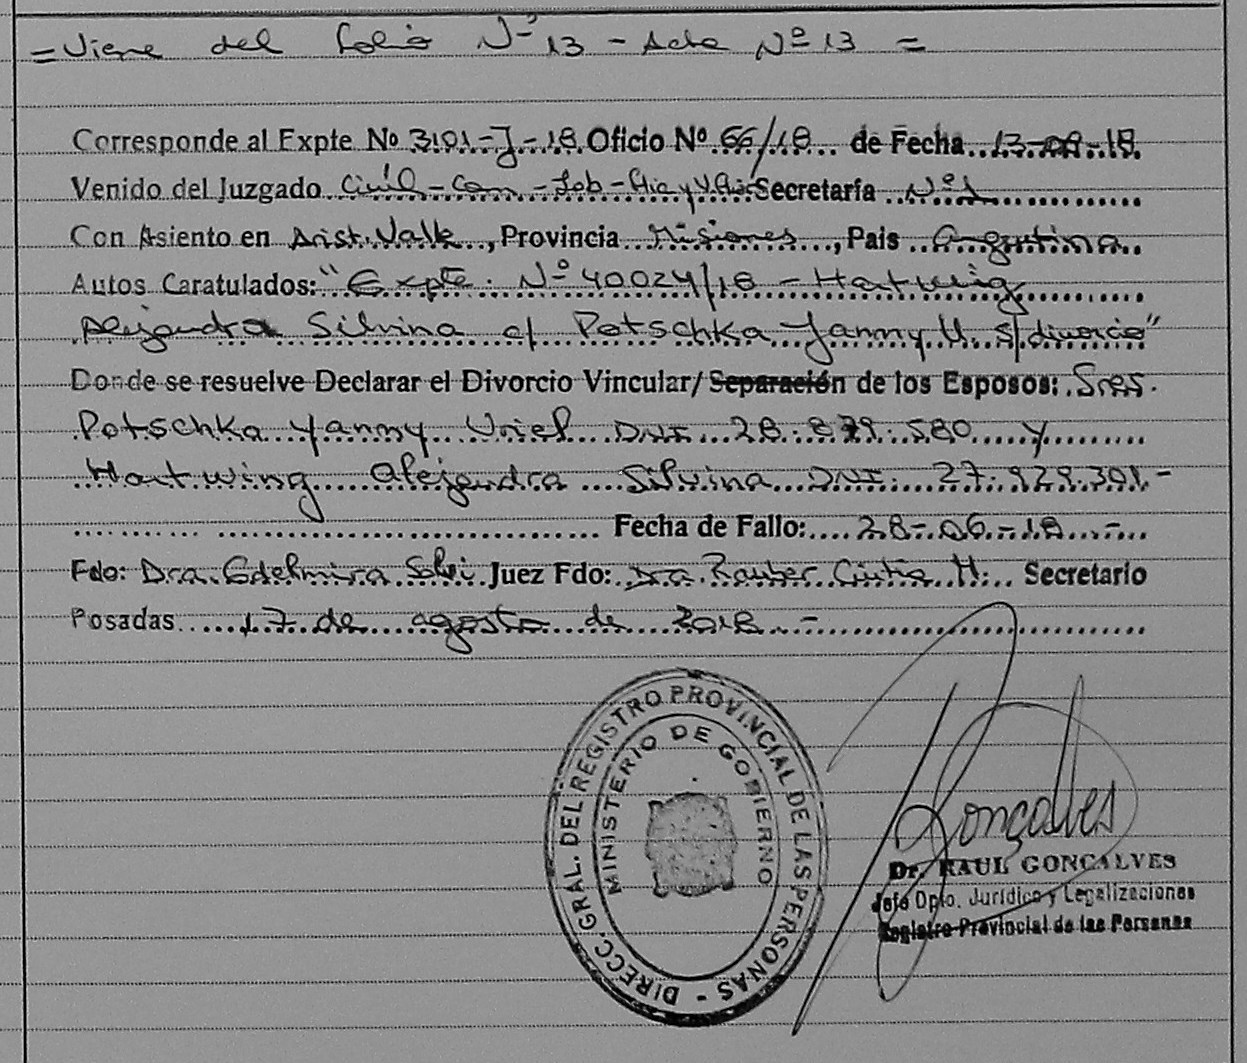 = Viene del folio Nº 13 - Acta Nº 13 =
Corresponde al Expte Nº 3101-J-18 Oficio Nº 66/18 de Fecha 13-08-18
Venido del Juzgado Civil-Com-Lab-Flia y V.Flia Secretaría Nº1
Con Asiento en Arist. Valle, Provincia Misiones, Pais Argentina
Autos Caratulados: "Expte: Nº 40024/18 - Hartwig
Alejandra Silvina c/ Potschka Yanny U. s/divorcio"
Donde se resuelve Declarar el Divorcio Vincular/Separación de los Esposos: Sres.
Potschka Yanny Uriel DNI 28.879.580 y
Hartwing Alejandra Silvina DNI: 27.929.301.-
Fecha de Fallo: 28-06-18.-
Fdo: Dra. Edelmira Juez Fdo: Dra. Rauber Cintia M. Secretario
Posadas 17 de agosto de 2018.-
DIRECC. GRAL. DEL REGISTRO PROVINCIAL DE LAS PERSONAS -
MINISTERIO DE GOBIERNO
Gonçalves
Dr. RAUL GONCALVES
Jefe Dpto. Jurídico y Legalizaciones
Registro Provincial de las Personas